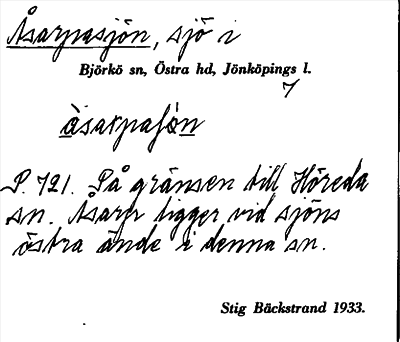 Åsarpasjön, sjö i
Björkö sn, Östra hd, Jönköpings l.
7
åsarpaʃön
P. 721. På gränsen till Höreda
sn. Åsarp ligger vid sjöns
östra ände i denna sn.
Stig Bäckstrand 1933.